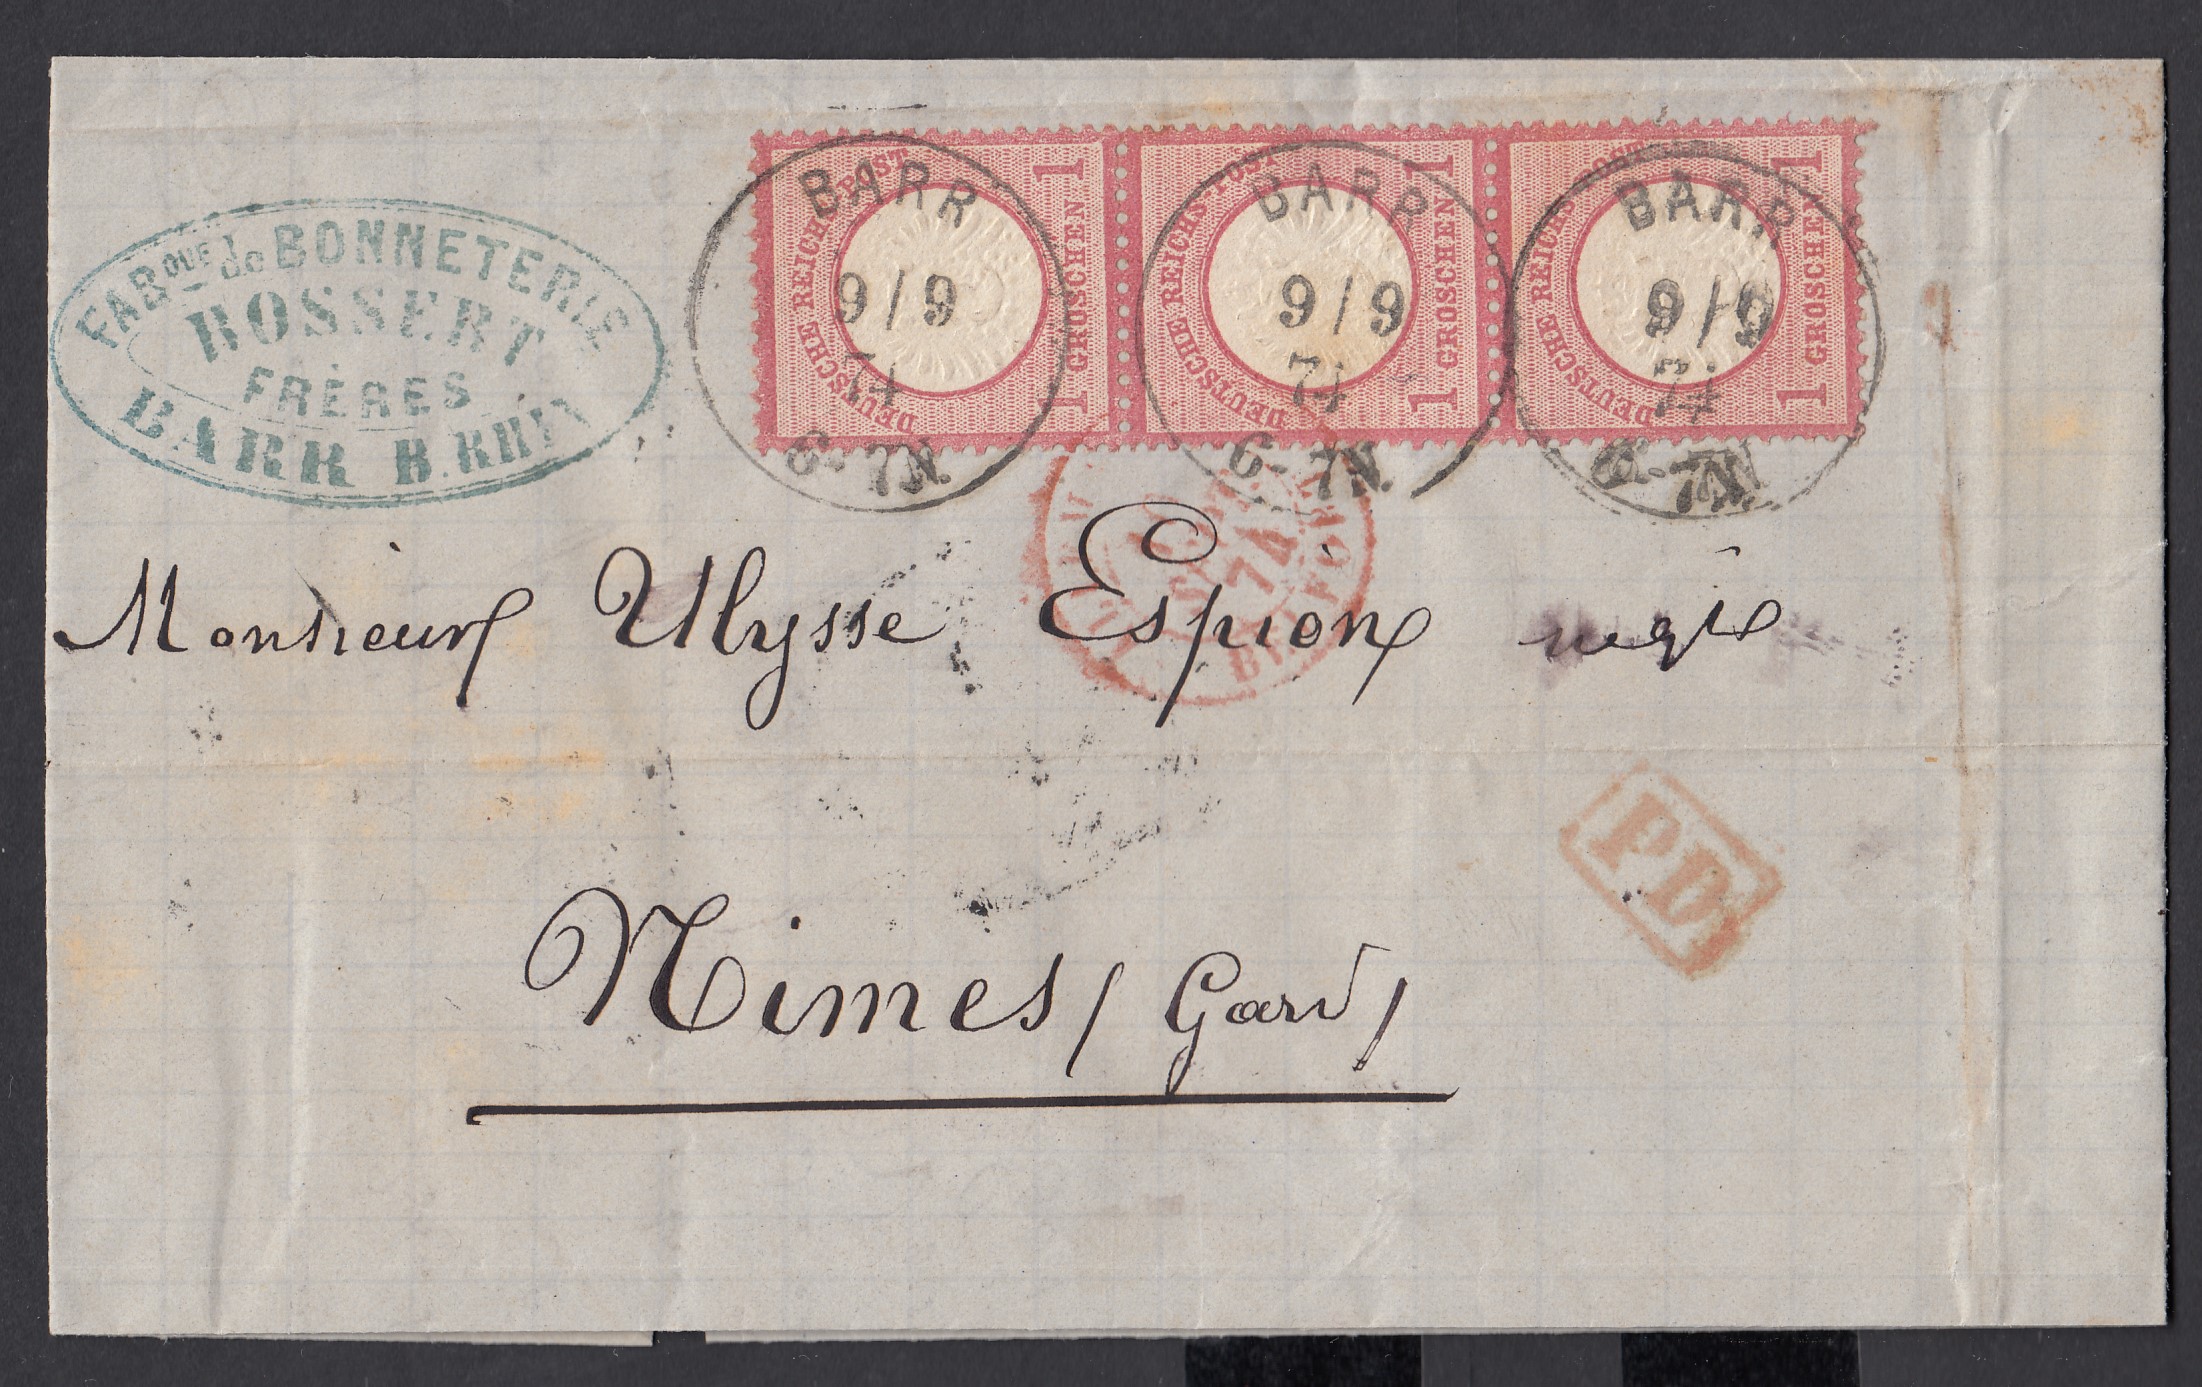 FABQUE de BONNETERIE
BOSSERT
FRÈRES
BARR B. RHIN
DEUTSCHE REICHS-POST
1 GROSCHEN 1
BARR
9/9
74
6-7N.
DEUTSCHE REICHS-POST
1 GROSCHEN 1
BARR
9/9
74
6-7N.
DEUTSCHE REICHS-POST
1 GROSCHEN 1
BARR
9/9
74
6-7N.
SEPT
74
BELFORT
Monsieur Ulysse Espion
PD
Nimes / Gard /